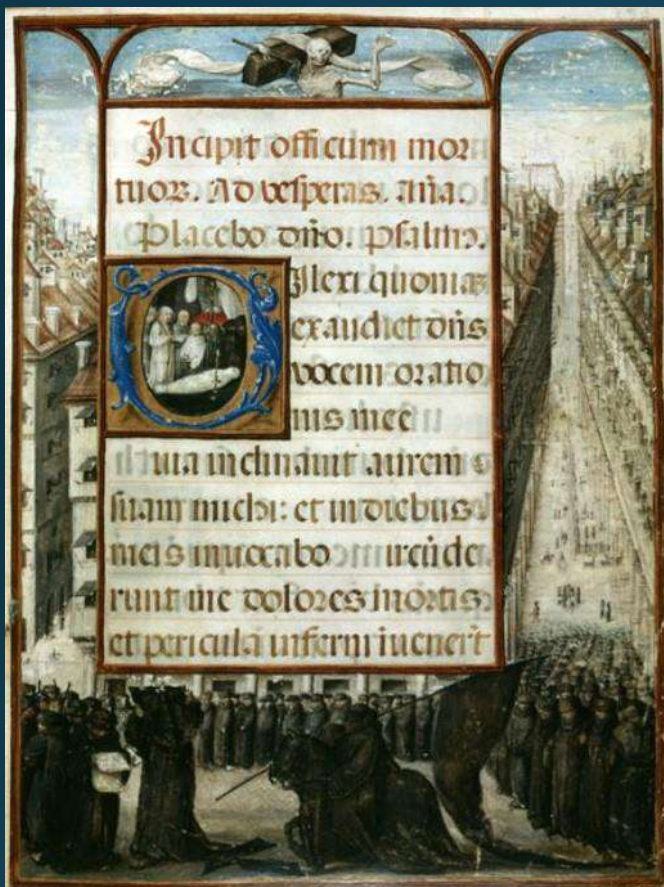 Incipit officium mor
tuor. Ad vesperas. aña.
Placebo dño. psalm9.
Dilexi quoniaz
exaudiet dñs
vocem oratio
nis mee
uia inclinavit aurem
suam michi: et in diebus
meis invocabo ircũde
runt me dolores mortis
et pericula inferni ĩuenerũt